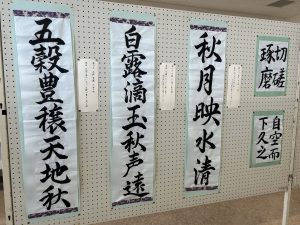 切磋
琢磨
自空而
下久之
秋月映水清
白露滴玉秋声遠
五穀豊穣天地秋